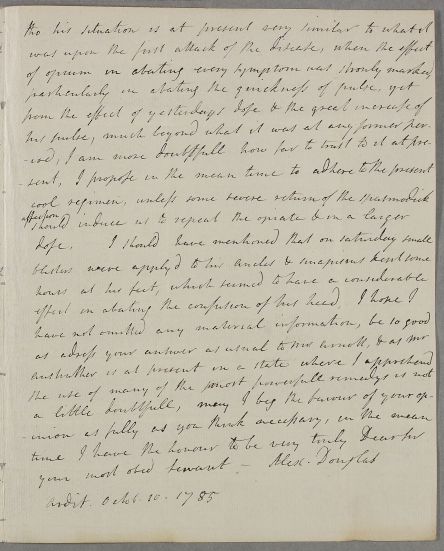 tho his situation is at present very similar to what it
was upon the first attack of the disease, when the effect
of opium in abating every symptom was strongly marked,
particularly in abating the quickness of pulse, yet
from the effect of yesterdays dose & the great increase of
his pulse, much beyond what it was at any former per-
-iod, I am more doubtfull how far to trust to it at pre-
-sent, I propose in the mean time to adhere to the present
cool regimen, unless some severe return of the spasmodick
affection
should induce us to repeat the opiate & in a larger
dose. I should have mentioned that on saturday small
blisters were apply'd to his ancles & sinapisms some
hours at his feet, which seemed to have a considerable
effect in abating the confusion of his head, I hope I
have not omitted any material information, be so good
as adress your answer as usual to Mr Arnott, & as Mr
Anstruther is at present in a state where I apprehend
the use of many of the most powerfull remedys is not
a little doubtfull, may I beg the favour of your op-
-inion as fully as you think necessary, in the mean
time I have the honour to be very truly Dear Sir
your most obed servant - Alexr. Douglas
Octbr. 10. 1785